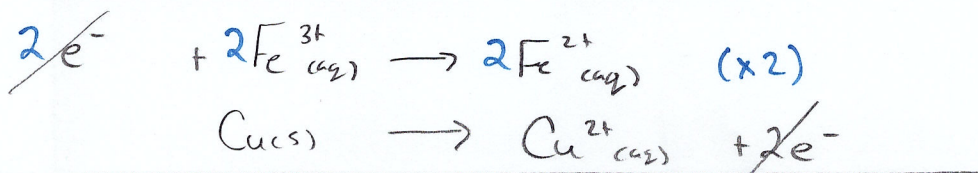 2e⁻ + 2Fe³⁺(aq) → 2Fe²⁺(aq) (x2)
Cu(s) → Cu²⁺(aq) + 2e⁻